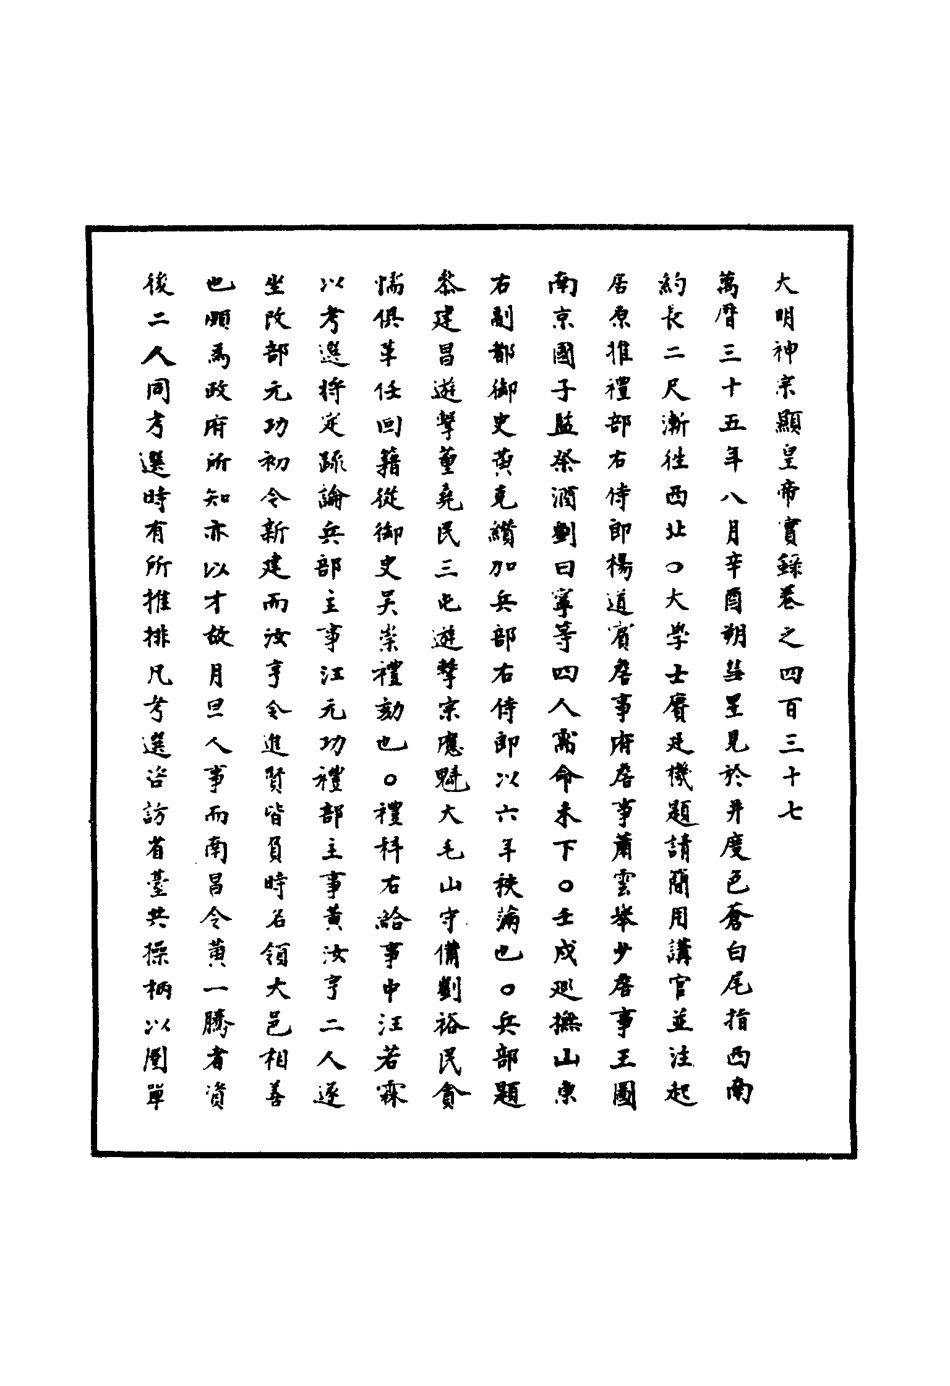 大明神宗顯皇帝實錄卷之四百三十七
萬曆三十五年八月辛酉朔彗星見於井度色蒼白尾指西南
約長二尺漸往西北○大學士賡廷機題請簡用講官並注起
居原推禮部右侍郎楊道賓詹事府詹事蕭雲舉少詹事王圖
南京國子監祭酒劉曰寧等四人喬命未下○壬戌巡撫山東
右副都御史黃克纘加兵部右侍郎以六年秩滿也○兵部題
參建昌遊擊董堯民三屯遊擊宗應魁大毛山守備劉裕民貪
懦俱革任回籍從御史吳崇禮劾也○禮科右給事中汪若霖
以考選將定疏論兵部主事江元功禮部主事黃汝亨二人逐
坐改部元功初令新建而汝亨令進賢皆負時名領大邑相善
也頗為政府所知亦以才故月旦人事而南昌令黃一騰者資
後二人同考選時有所推排凡考選咨訪省臺共操柄以圈單